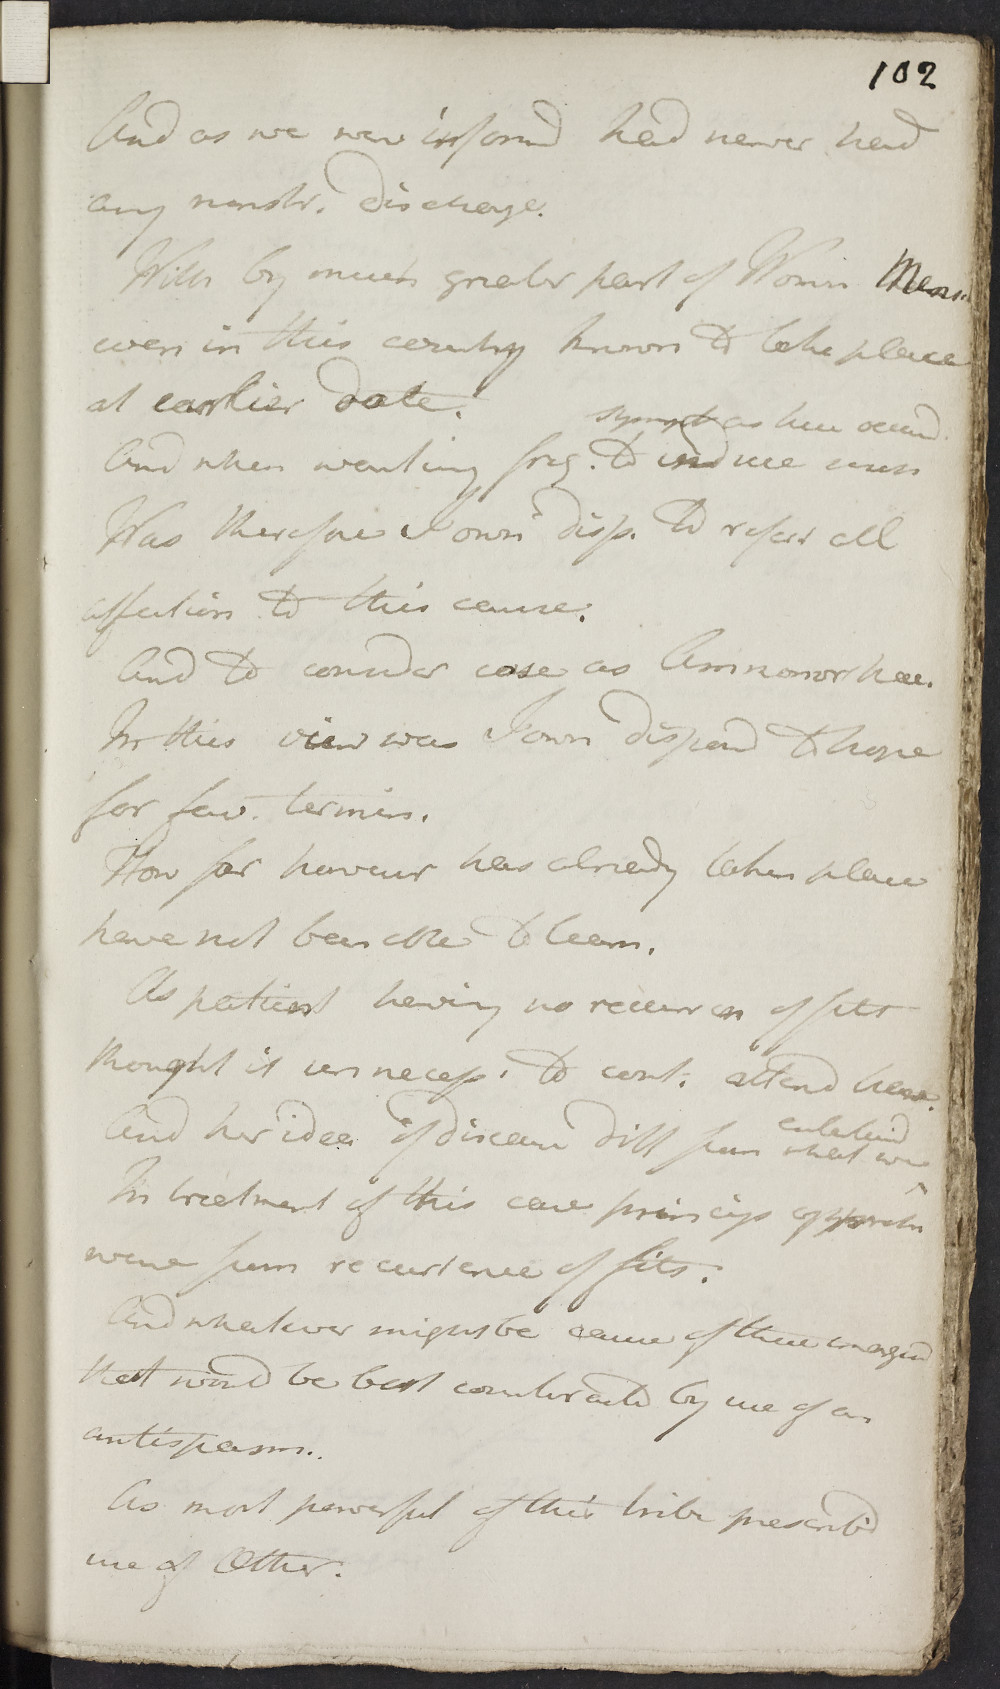 102
And as we were informd had never had
any menstr. discharge.
With by much greater part of Women Mens.
even in this country known to take place
at earlier date.
sympt as here occurd
And when wanting freq. to induce such
Was therefore I own disp. to refer all
affection to this cause.
And to consider case as Amenorrhœa.
In this view was I own disposed to hope
for fav. termin.
How far however has already taken place
have not been able to learn.
As patient having no recurren of fits
thought it unnecess. to cont. attend here.
And her idea of disease diff from what we
entertaind
In treatment of this case princip apprehn
were from recurrence of fits.
And whatever might be cause of these imagind
that would be best counteracted by use of an
antispasm.
As most powerful of this tribe prescrib'd
use of Æther.